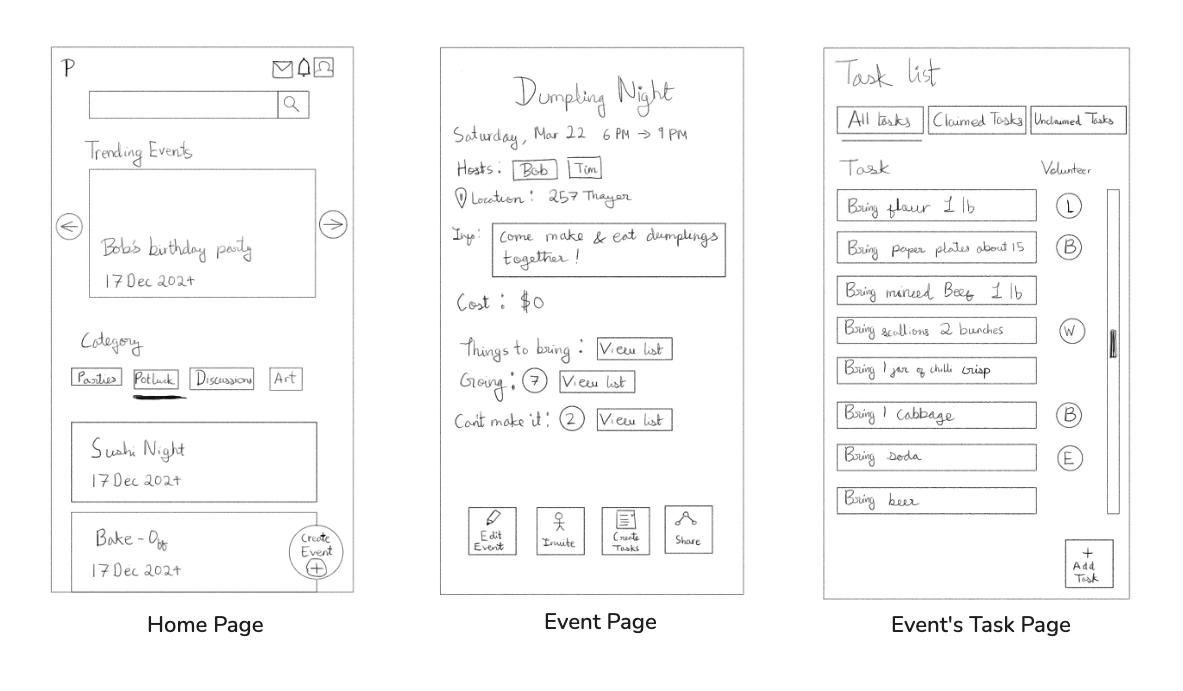 P
Trending Events
Bob's birthday party
17 Dec 2024
Category
Parties Potluck Discussion Art
Sushi Night
17 Dec 2024
Bake-Off
17 Dec 2024
Create
Event
+
Home Page
Dumpling Night
Saturday, Mar 22 6 PM → 9 PM
Hosts: Bob Tim
Location: 257 Thayer
Info: Come make & eat dumplings
together!
Cost: $0
Things to bring: View list
Going: 7 View list
Can't make it: 2 View list
Edit
Event
Invite
Create
Tasks
Share
Event Page
Task list
All tasks Claimed Tasks Unclaimed Tasks
Task Volunteer
Bring flour 1 lb L
Bring paper plates about 15 B
Bring minced Beef 1 lb
Bring scallions 2 bunches W
Bring 1 jar of chilli crisp
Bring 1 cabbage B
Bring soda E
Bring beer
+
Add
Task
Event's Task Page